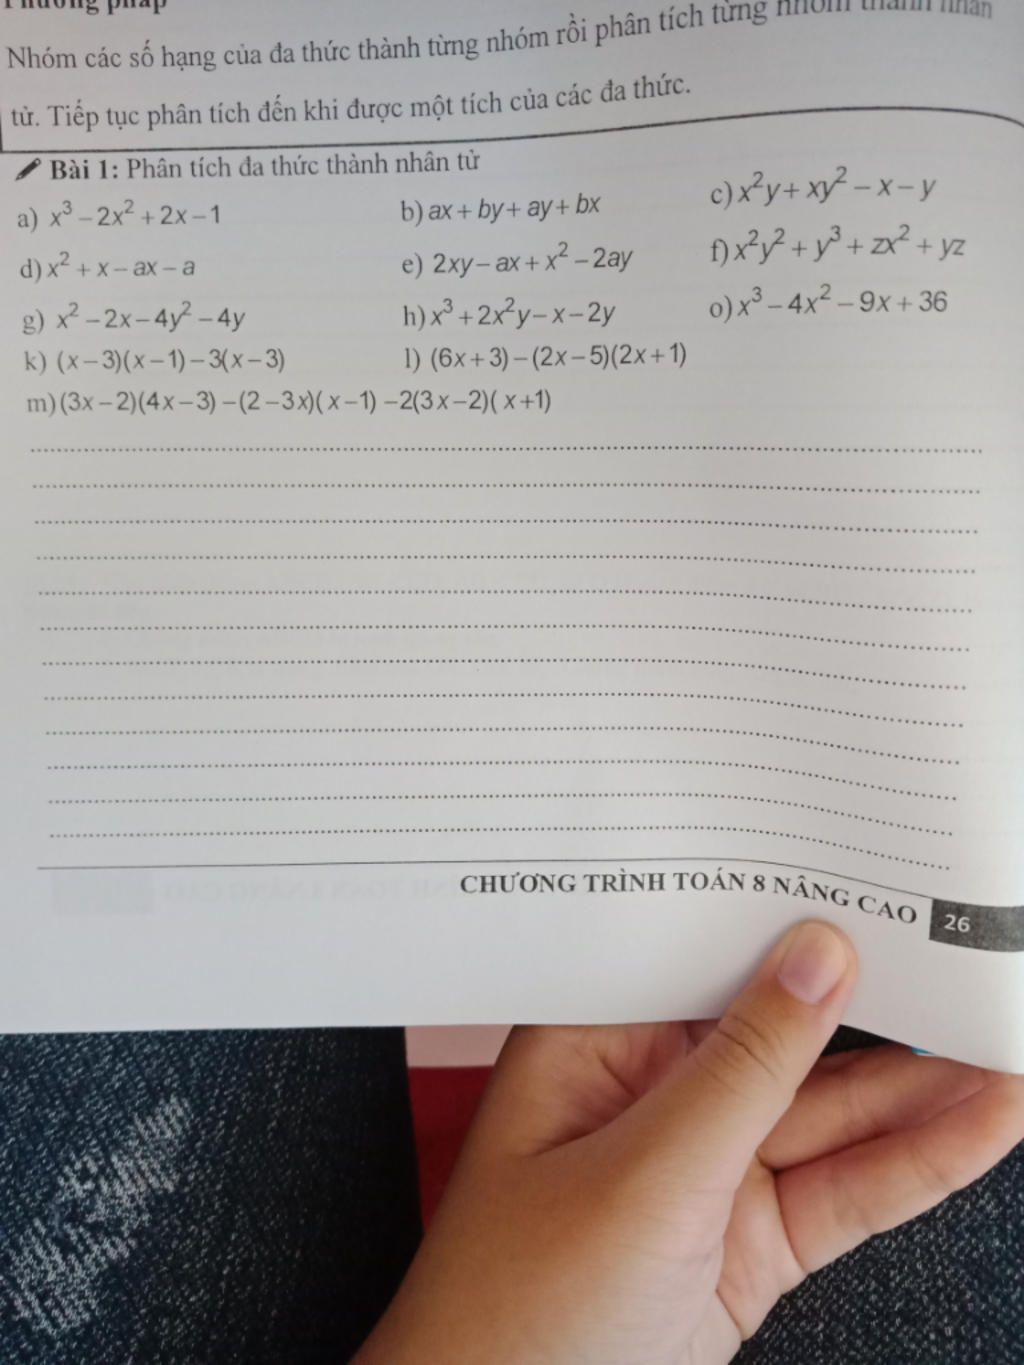 Phương pháp
Nhóm các số hạng của đa thức thành từng nhóm rồi phân tích từng nhóm thành nhân
tử. Tiếp tục phân tích đến khi được một tích của các đa thức.
Bài 1: Phân tích đa thức thành nhân tử
a) x³ – 2x² + 2x – 1 b) ax + by + ay + bx c) x²y + xy² – x – y
d) x² + x – ax – a e) 2xy – ax + x² – 2ay f) x²y² + y³ + zx² + yz
g) x² – 2x – 4y² – 4y h) x³ + 2x²y – x – 2y o) x³ – 4x² – 9x + 36
k) (x – 3)(x – 1) – 3(x – 3) l) (6x + 3) – (2x – 5)(2x + 1)
m) (3x – 2)(4x – 3) – (2 – 3x)(x – 1) – 2(3x – 2)(x + 1)
CHƯƠNG TRÌNH TOÁN 8 NÂNG CAO 26